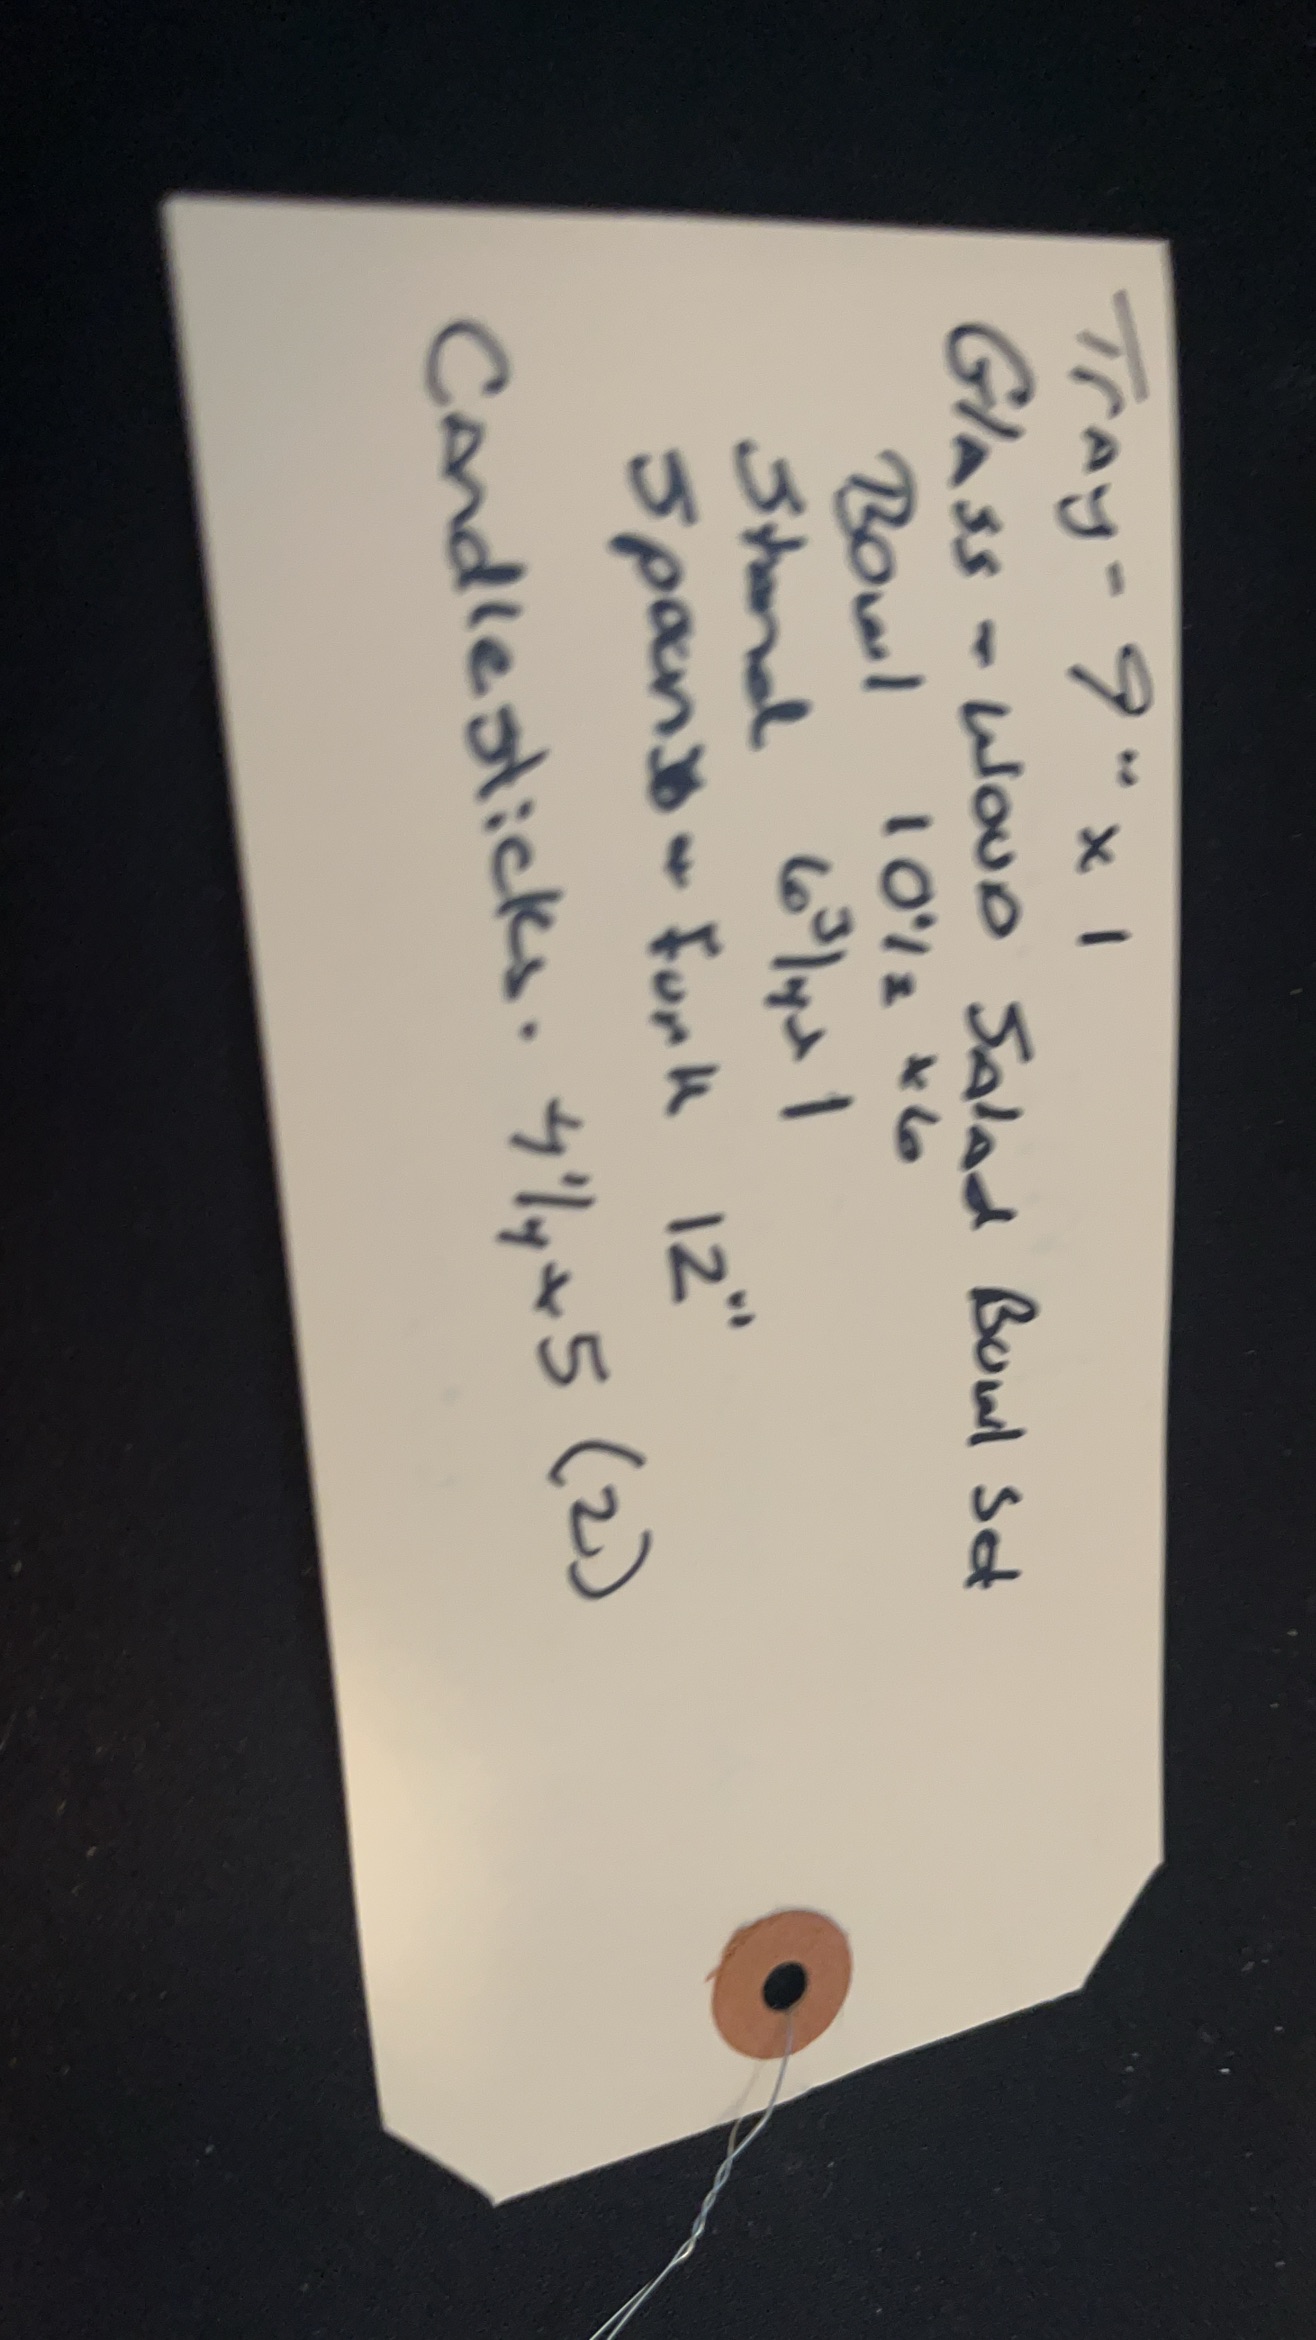 Tray - 9" x 1
Glass - Wood Salad Bowl Set
Bowl 10 1/2 x 6
Stand 6 3/4 x 1
Fork 12"
Candlesticks. 4 1/4 x 5 (2)